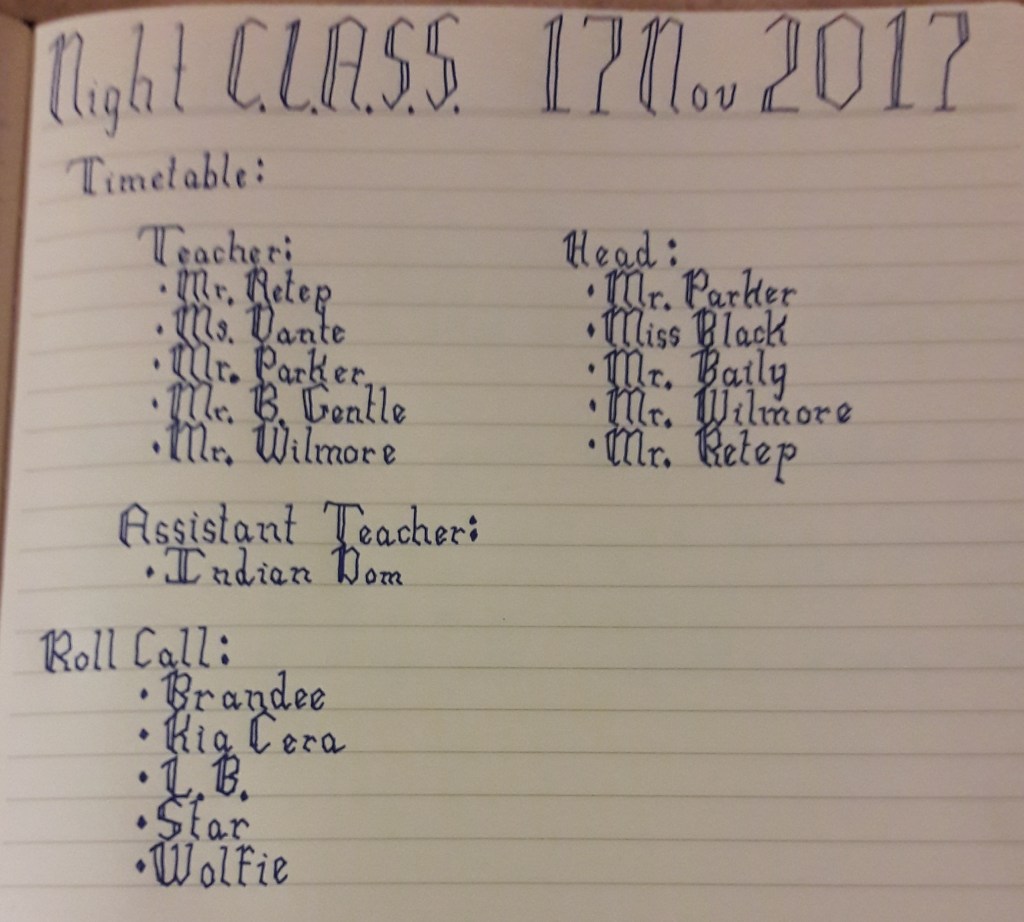 Night C.L.A.S.S. 17 Nov 2017
Timetable:
Teacher:
• Mr. Retep
• Ms. Dante
• Mr. Parker
• Mr. B. Gentle
• Mr. Wilmore
Head:
• Mr. Parker
• Miss Black
• Mr. Baily
• Mr. Wilmore
• Mr. Retep
Assistant Teacher:
• Indian Dom
Roll Call:
• Brandee
• Kia Cera
• L.B.
• Star
• Wolfie